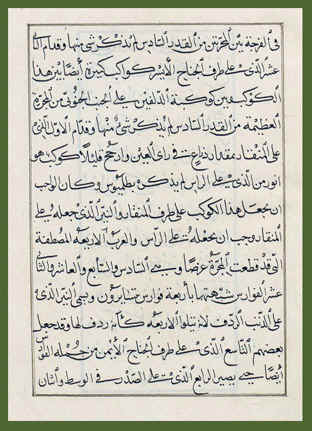 في الفرجة بين المجرتين من القدر السادس لم يذكر شئ منها وقدام
عشر الذي على طرف الجناح الايسر كواكب كثيرة ايضا بين هذا
الكوكب وبين كوكبة الدلفين على الجنب الجنوبي من المجرة
العظيمة من القدر السادس لم يذكر شئ منها وقدام الاول الذي
على المنقار بمقدار ذراع في راى العين وارجح قليلا كوكب هو
انور من الذي على الراس لم يذكره بطلميوس وكان الواجب
ان يجعل هذا الكوكب على طرف المنقار والنير الذي جعله على
المنقار وجب ان يجعله على الراس والعرب الاربعة المصطفة
التي قد قطعت المجرة عرضا وهي السادس والسابع والعاشر والثا
عشر الفوارس شبهتها باربعة فوارس يتسايرون ويسمى النير الذي
على الذنب الردف لانه يتلوا الاربعة كانه ردف لها وقد جعل
بعضهم التاسع الذي على طرف الجناح الايمن من جملة الفوارس
ايضا حتى يصير الرابع الذي على الصدر في الوسط واثنان